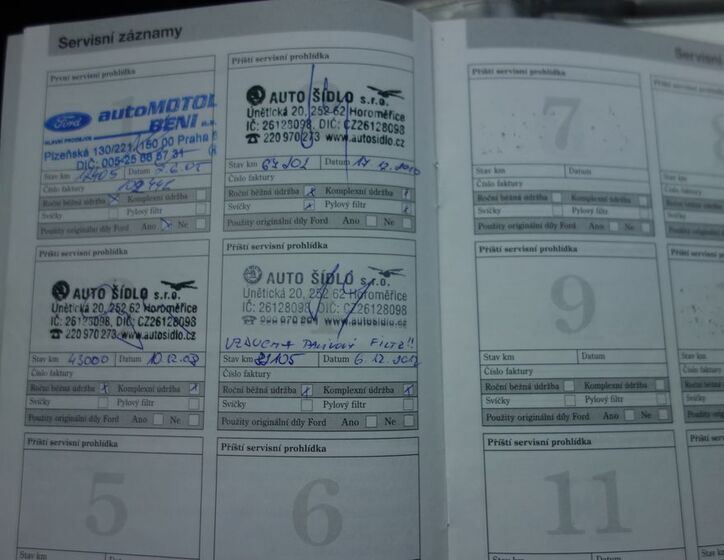 Servisní záznamy
První servisní prohlídka
Ford
autoMOTOL
BENI a.s.
Plzeňská 130/221, 150 00 Praha 5
Stav km 12405 Datum
Číslo faktury
Roční běžná údržba x Komplexní údržba
Svíčky Pylový filtr
Použity originální díly Ford Ano x Ne
Příští servisní prohlídka
AUTO ŠÍDLO s.r.o.
Únětická 20, 252 62 Horoměřice
IČ: 26128098, DIČ: CZ26128098
☎ 220 970 273 www.autosidlo.cz
Stav km 67202 Datum 17.12.2010
Číslo faktury
Roční běžná údržba x Komplexní údržba x
Svíčky x Pylový filtr x
Použity originální díly Ford Ano Ne
AUTO ŠÍDLO s.r.o.
Únětická 20, 252 62 Horoměřice
IČ: 26128098, DIČ: CZ26128098
☎ 220 970 273 www.autosidlo.cz
Stav km 43000 Datum 10.12.08
Číslo faktury
Roční běžná údržba x Komplexní údržba x
Svíčky Pylový filtr
Použity originální díly Ford Ano Ne
Příští servisní prohlídka
AUTO ŠÍDLO s.r.o.
Únětická 20, 252 62 Horoměřice
IČ: 26128098, DIČ: CZ26128098
☎ 220 970 273 www.autosidlo.cz
FILTR!!
Stav km Datum 6.12.2012
Číslo faktury
Roční běžná údržba x Komplexní údržba x
Svíčky Pylový filtr
Použity originální díly Ford Ano Ne
Příští servisní prohlídka
5
Stav km
Příští servisní prohlídka
6
Příští servisní prohlídka
7
Stav km Datum
Číslo faktury
Roční běžná údržba Komplexní údržba
Svíčky Pylový filtr
Použity originální díly Ford Ano Ne
Příští servisní prohlídka
9
Stav km Datum
Číslo faktury
Roční běžná údržba Komplexní údržba
Svíčky Pylový filtr
Použity originální díly Ford Ano Ne
Příští servisní prohlídka
11